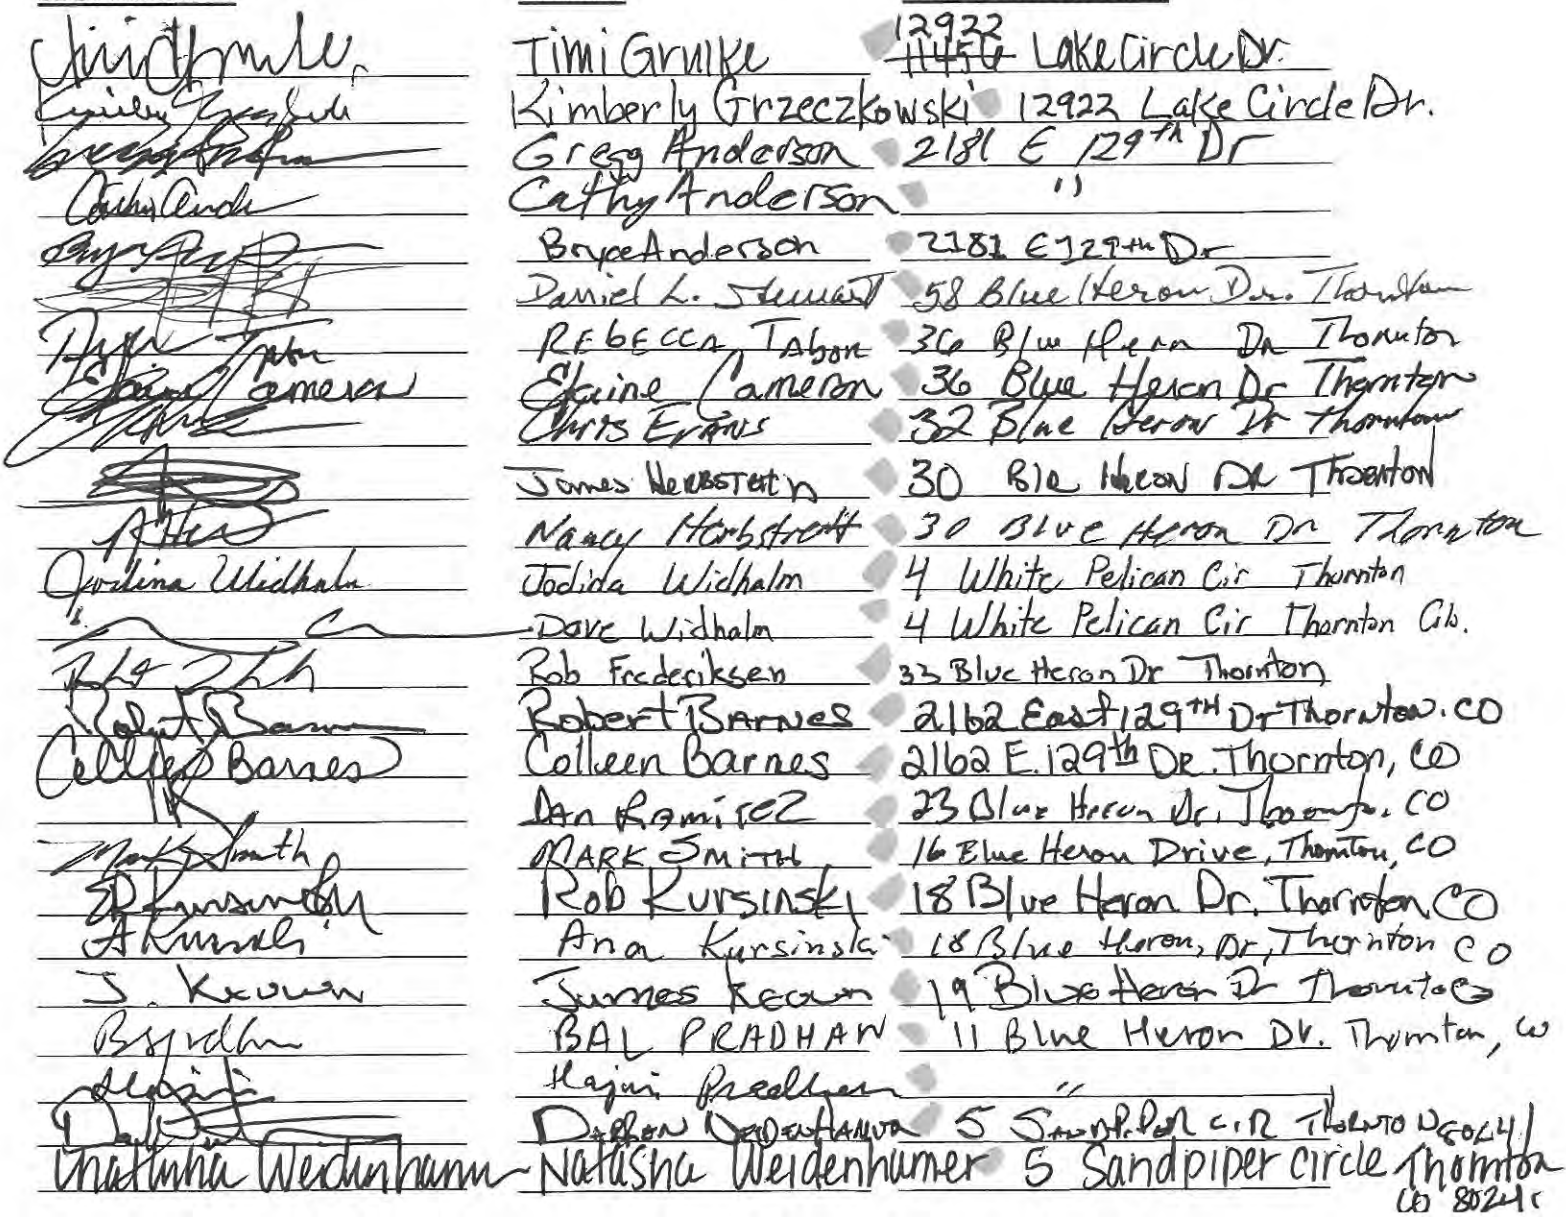 12922
Timi Grulke 11456 Lake Circle Dr.
Kimberly Grzeczkowski 12922 Lake Circle Dr.
Gregg Anderson 2181 E 129th Dr
Cathy Ande Cathy Anderson "
Bryce Anderson 2181 E 129th Dr
Daniel L. Stewart 58 Blue Heron Dr. Thornton
REBECCA TAbor 36 Blue Heron Dr Thornton
Elaine Cameron Elaine Cameron 36 Blue Heron Dr Thornton
Chris Evans 32 Blue Heron Dr Thornton
James 30 Ble Heron DR Thornton
Nancy Herbstreit 30 Blue Heron Dr Thornton
Jodina Widhalm Jodina Widhalm 4 White Pelican Cir Thornton
Dave Widhalm 4 White Pelican Cir Thornton Co.
Rob Frederiksen 33 Blue Heron Dr Thornton
Robert Barnes Robert BARNES 2162 East 129TH Dr Thornton. CO
Colleen Barnes Colleen Barnes 2162 E. 129th DR. Thornton, CO
DAn Ramirez 23 Blue Heron Dr. Thornton, CO
Mark Smith MARK SMITH 16 Blue Heron Drive, Thornton, CO
Kursinski Rob Kursinski 18 Blue Heron Dr. Thornton, CO
A Kursinski Ana Kursinski 18 Blue Heron, Dr, Thornton CO
J. Keown James Keown 19 Blue Heron Dr Thornton Co
BAL PRADHAN 11 Blue Heron Dr. Thornton, CO
Pradhan "
5 Sandpiper CIR THORNTON 80241
Weidenhamer Natasha Weidenhamer 5 Sandpiper Circle Thornton
CO 80241